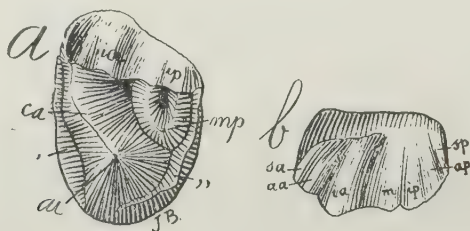 a
ia
ip
ca
mp
'
''
ai
J.B.
b
sa
aa
ia
m
ip
sp
ap